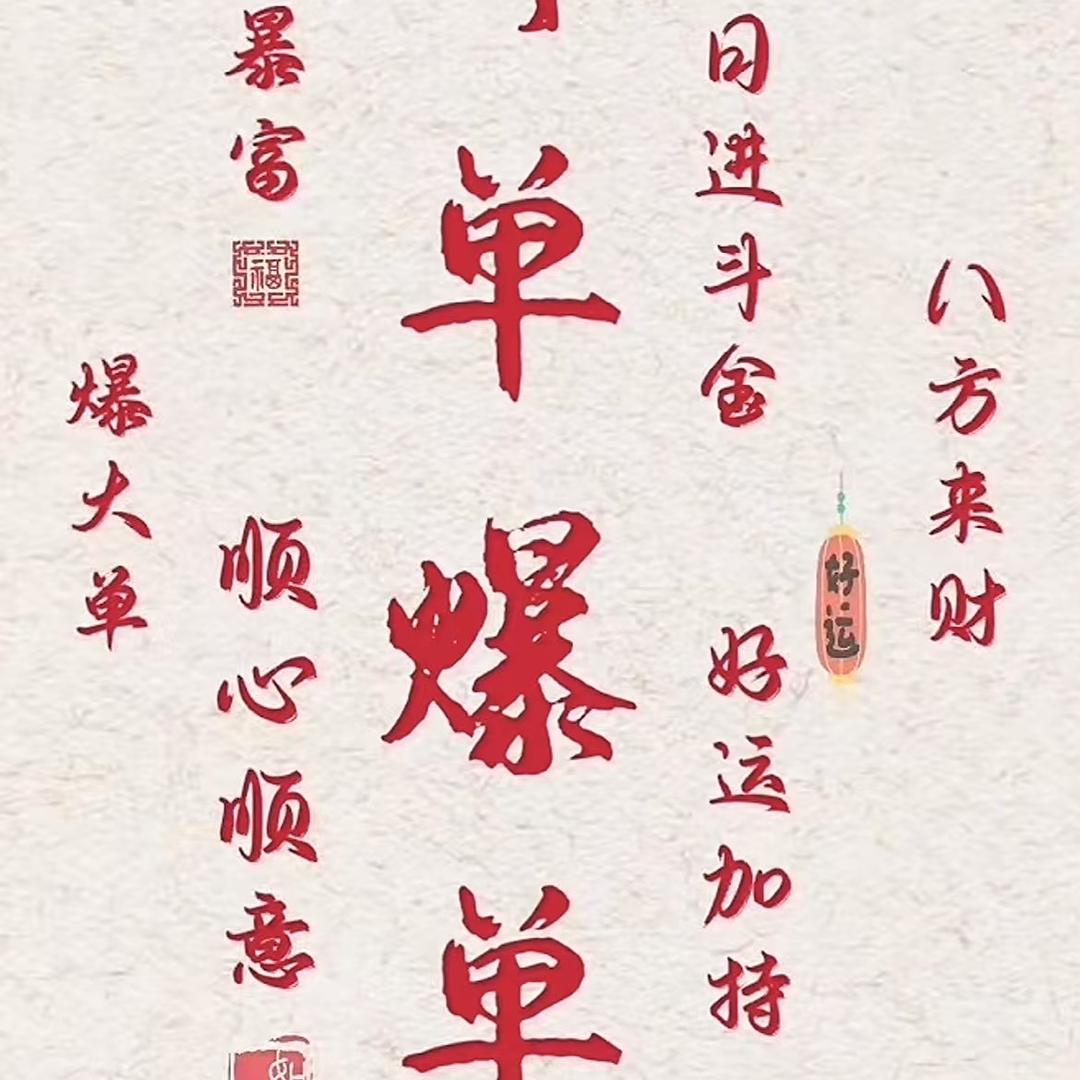 八方来财
日进斗金
好运加持
好运
单爆单
暴富
福
顺心顺意
爆大单